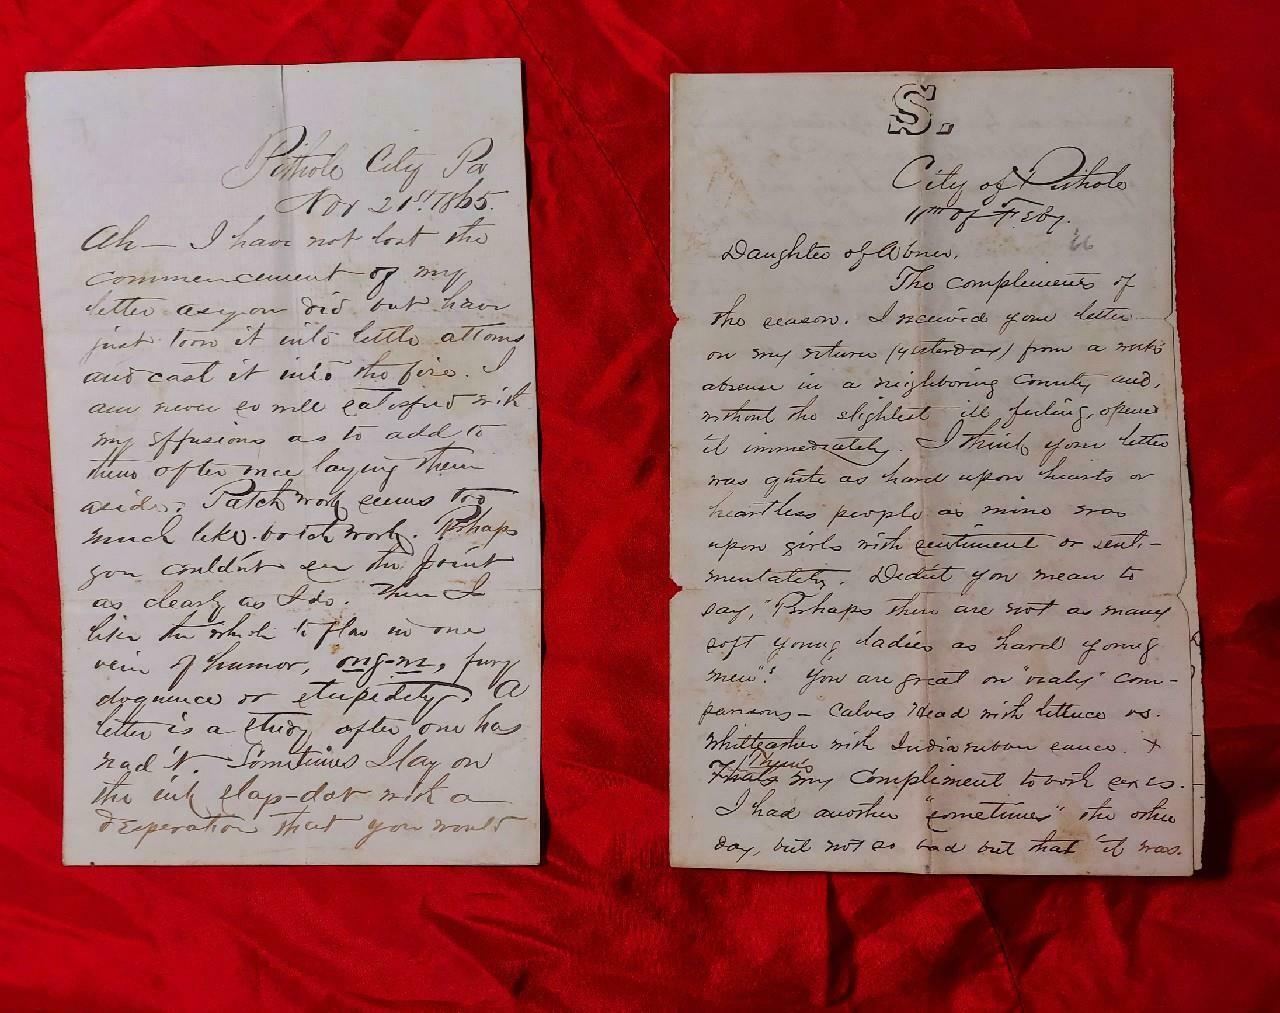 Pithole City Pa
Nov 21st 1865.
Ah — I have not lost the
commencement of my
letter as you did but have
just torn it into little attoms
and cast it into the fire. I
am never so well satisfied with
my effusions as to add to
them after once laying them
aside. Patch work seems too
much like botch work. Perhaps
you couldn't see the point
as clearly as I do. Then I
like the whole to flow in one
vein of humor, fury
eloquence or stupidity. A
letter is a study after one has
read it. Sometimes I lay on
the ink slap-dab with a
desperation that you would
S.
City of Pithole
11th of Feby.
'66
Daughter of Abner.
The compliments of
the season. I received your letter
on my return (yesterday) from a week's
absence in a neighboring County and,
without the slightest ill feeling, opened
it immediately. I think your letter
was quite as hard upon hearts or
heartless people as mine was
upon girls with sentiment or senti-
mentality. Didn't you mean to
say, "Perhaps there are not as many
soft young ladies as hard young
men"? You are great on com-
parisons — Calves Head with lettuce vs.
with India rubber sauce. +
my Compliment to both sexes.
I had another "sometimes" the other
day, but not so bad but that it was.